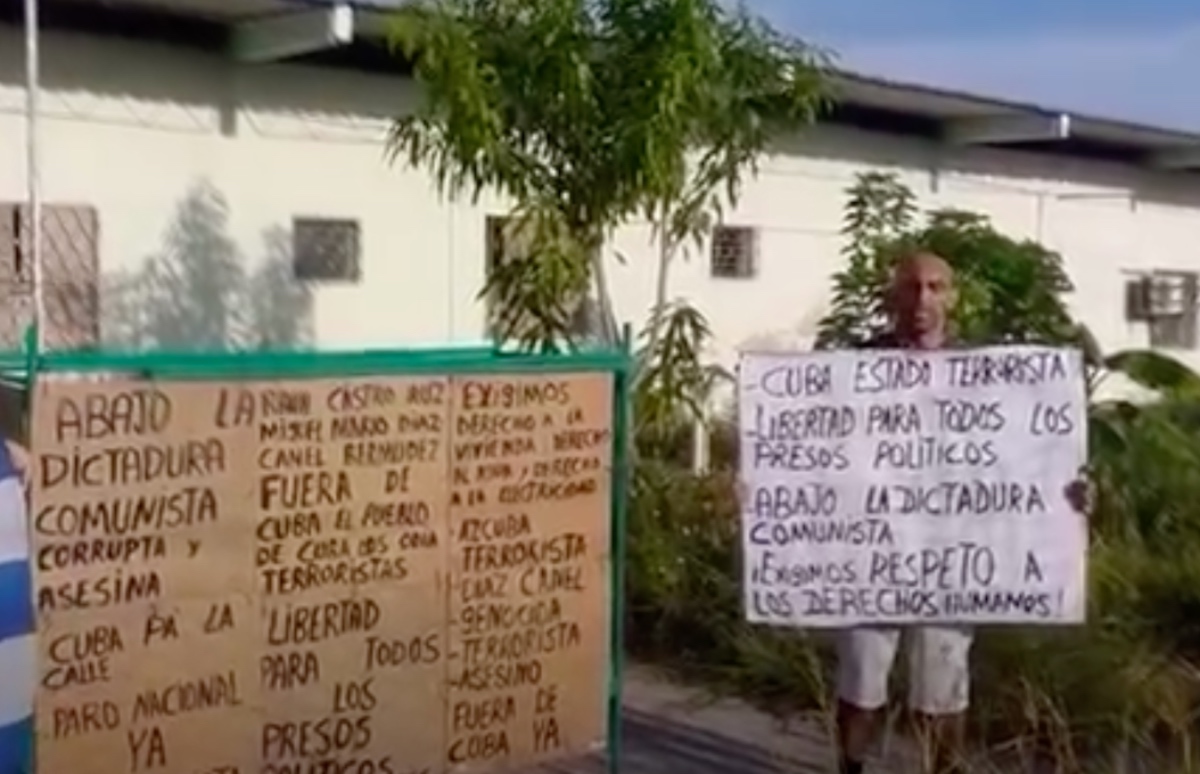 ABAJO LA
DICTADURA
COMUNISTA
CORRUPTA Y
ASESINA
CUBA PA LA
CALLE
PARO NACIONAL
YA
CASTRO RUIZ
MARIO DIAZ
CANEL BERMUDEZ
FUERA DE
CUBA EL PUEBLO
DE CUBA
TERRORISTAS
LIBERTAD
PARA TODOS
LOS
PRESOS
POLITICOS
EXIGIMOS
DERECHO A LA
VIVIENDA DERECHO
AL AGUA Y DERECHO
A LA ELECTRICIDAD
AZCUBA
TERRORISTA
-DIAZ CANEL
-GENOCIDA
-TERRORISTA
-ASESINO
FUERA DE
CUBA YA
-CUBA ESTADO TERRORISTA
-LIBERTAD PARA TODOS LOS
PRESOS POLÍTICOS
-ABAJO LA DICTADURA
COMUNISTA
¡EXIGIMOS RESPETO A
LOS DERECHOS HUMANOS!